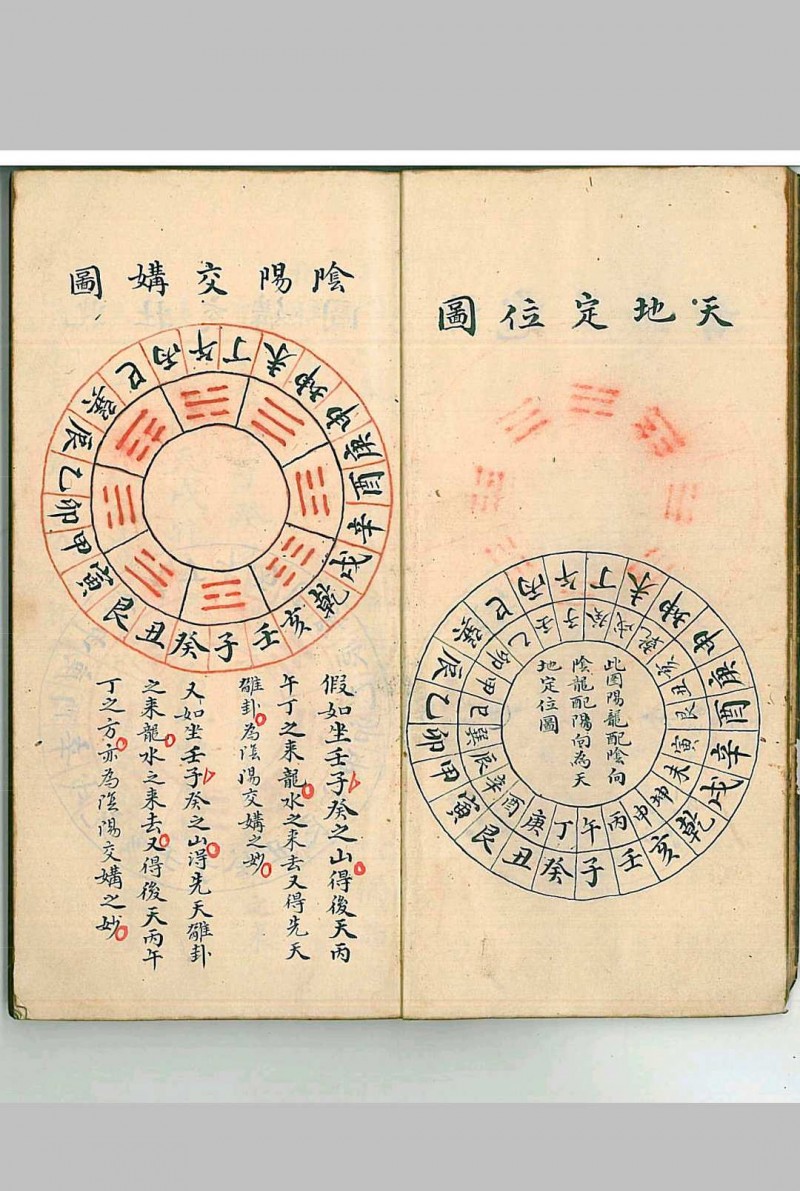 天地定位圖
子癸丑艮寅甲卯乙辰巽巳丙午丁未坤申庚酉辛戌乾亥壬
午丁庚酉辛辰巽巳甲卯乙子壬癸戌乾亥丑艮寅未坤申丙
此图陽龍配陰向
陰龍配陽向為天
地定位圖
陰陽交媾圖
子癸丑艮寅甲卯乙辰巽巳丙午丁未坤申庚酉辛戌乾亥壬
假如坐壬子癸之山得後天丙
午丁之来龍水之来去又得先天
離卦為陰陽交媾之妙
又如坐壬子癸之山得先天離卦
之来龍水之来去又得後天丙午
丁之方亦為陰陽交媾之妙